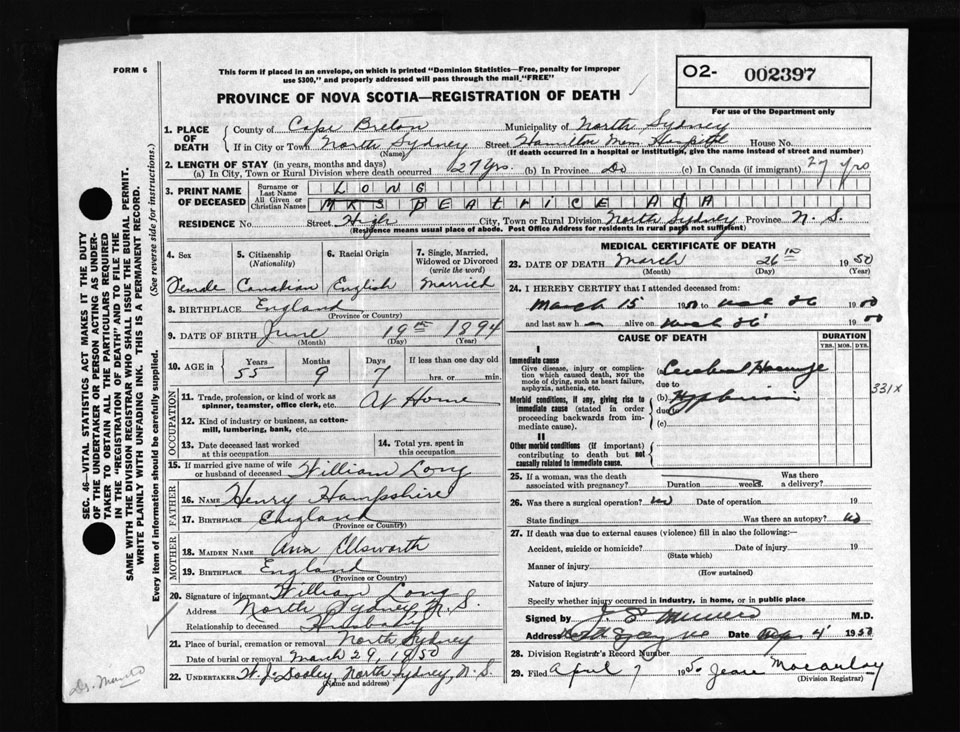 FORM 6
This form if placed in an envelope, on which is printed "Dominion Statistics—Free, penalty for improper
use $300," and properly addressed will pass through the mail "FREE"
PROVINCE OF NOVA SCOTIA—REGISTRATION OF DEATH
O2- 002397
For use of the Department only
SEC. 46—VITAL STATISTICS ACT MAKES IT THE DUTY
OF THE UNDERTAKER OR PERSON ACTING AS UNDER-
TAKER TO OBTAIN ALL THE PARTICULARS REQUIRED
IN THE "REGISTRATION OF DEATH" AND TO FILE THE
SAME WITH THE DIVISION REGISTRAR WHO SHALL ISSUE THE BURIAL PERMIT.
WRITE PLAINLY WITH UNFADING INK. THIS IS A PERMANENT RECORD.
Every item of information should be carefully supplied. (See reverse side for instructions.)
1. PLACE OF DEATH
County of Cape Breton Municipality of North Sydney
If in City or Town North Sydney Street Hamilton Mem Hospital House No.
(Name) (If death occurred in a hospital or institution, give the name instead of street and number)
2. LENGTH OF STAY (in years, months and days)
(a) In City, Town or Rural Division where death occurred 27 yrs. (b) In Province Do (c) In Canada (if immigrant) 27 yrs
3. PRINT NAME OF DECEASED
Surname or Last Name LONG
All Given or Christian Names MRS BEATRICE ADA
RESIDENCE No. Street High City, Town or Rural Division North Sydney Province N. S.
(Residence means usual place of abode. Post Office Address for residents in rural parts not sufficient)
4. Sex
Female
5. Citizenship (Nationality)
Canadian
6. Racial Origin
English
7. Single, Married, Widowed or Divorced (write the word)
Married
8. BIRTHPLACE England
(Province or Country)
9. DATE OF BIRTH June 19th 1894
(Month) (Day) (Year)
10. AGE in Years Months Days If less than one day old
55 9 7 hrs. or min.
OCCUPATION
11. Trade, profession, or kind of work as spinner, teamster, office clerk, etc. At Home
12. Kind of industry or business, as cotton-mill, lumbering, bank, etc.
13. Date deceased last worked at this occupation
14. Total yrs. spent in this occupation
15. If married give name of wife or husband of deceased William Long
FATHER
16. NAME Henry Hampshire
17. BIRTHPLACE England
(Province or Country)
MOTHER
18. MAIDEN NAME Ann Ellsworth
19. BIRTHPLACE England
(Province or Country)
20. Signature of informant William Long
Address North Sydney, N.S.
Relationship to deceased Husband
21. Place of burial, cremation or removal North Sydney
Date of burial or removal March 29, 1950
22. UNDERTAKER W. J. Dooley, North Sydney, N. S.
(Name and address)
MEDICAL CERTIFICATE OF DEATH
23. DATE OF DEATH March 26th 1950
(Month) (Day) (Year)
24. I HEREBY CERTIFY that I attended deceased from:
March 15 to 26 19
and last saw h alive on 26 19
CAUSE OF DEATH
DURATION
YRS. MOS. DYS.
I
Immediate cause
Give disease, injury or complication which caused death, NOT the mode of dying, such as heart failure, asphyxia, asthenia, etc.
Cerebral
due to
Morbid conditions, if any, giving rise to immediate cause (stated in order proceeding backwards from immediate cause).
(b)
due to
(c)
331X
II
Other morbid conditions (if important) contributing to death but not causally related to immediate cause.
25. If a woman, was the death associated with pregnancy? Duration weeks. Was there a delivery?
26. Was there a surgical operation? no Date of operation 19
State findings Was there an autopsy? no
27. If death was due to external causes (violence) fill in also the following:—
Accident, suicide or homicide? Date of injury 19
(State which)
Manner of injury
(How sustained)
Nature of injury
Specify whether injury occurred in industry, in home, or in public place
Signed by M.D.
Address Date 4 1950
28. Division Registrar's Record Number
29. Filed April 7 1950 Jean Macaulay
(Division Registrar)